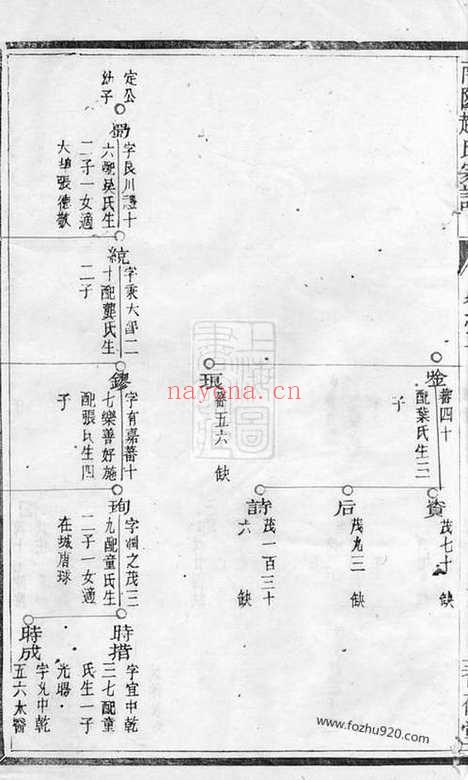 崟
蕃四十
配葉氏生三
子
資
茂七十 缺
后
茂九三 缺
詩
茂一百三十
六 缺
現
蕃五六 缺
定公
幼子
勗
字良川 十
六配吳氏生
二子一女適
大 張德敬
統
字秉大 二
十配龔氏生
二子
鏐
字有嘉蕃十
七樂善好施
配張氏生四
子
珣
字潤之茂三
九配童氏生
二子一女適
在城唐球
時措
字宜中乾
三七配童
氏生一子
光
時成
字允中乾
五六太醫
nayona.cn
www.fozhu920.com